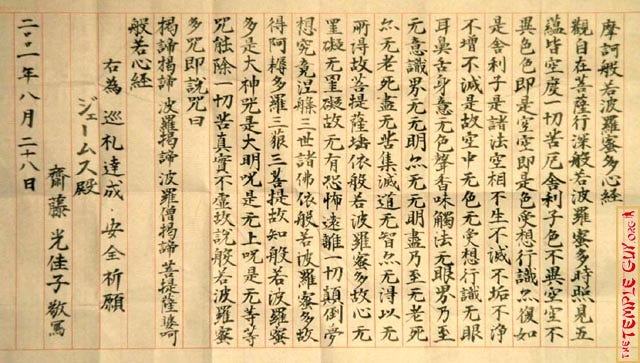 摩訶般若波羅蜜多心経
觀自在菩薩行深般若波羅蜜多時照見五
蘊皆空度一切苦厄舎利子色不異空空不
異色色即是空空即是色受想行識亦復如
是舎利子是諸法空相不生不滅不垢不浄
不増不減是故空中无色无受想行識无眼
耳鼻舌身意无色聲香味觸法无眼界乃至
无意識界无无明亦无无明盡乃至无老死
亦无老死盡无苦集滅道无智亦无得以无
所得故菩提薩埵依般若波羅蜜多故心无
罣礙无罣礙故无有恐怖遠離一切顛倒夢
想究竟涅槃三世諸佛依般若波羅蜜多故
得阿耨多羅三藐三菩提故知般若波羅蜜
多是大神咒是大明咒是无上咒是无等等
咒能除一切苦真實不虛故説般若波羅蜜
多咒即説咒曰
掲諦掲諦 波羅掲諦 波羅僧掲諦 菩提薩婆訶
般若心経
右為 巡札達成・安全祈願
ジェームス殿
齋藤 光佳子 敬写
二〇〇一年八月二十八日
THE TEMPLE GUY.ORG